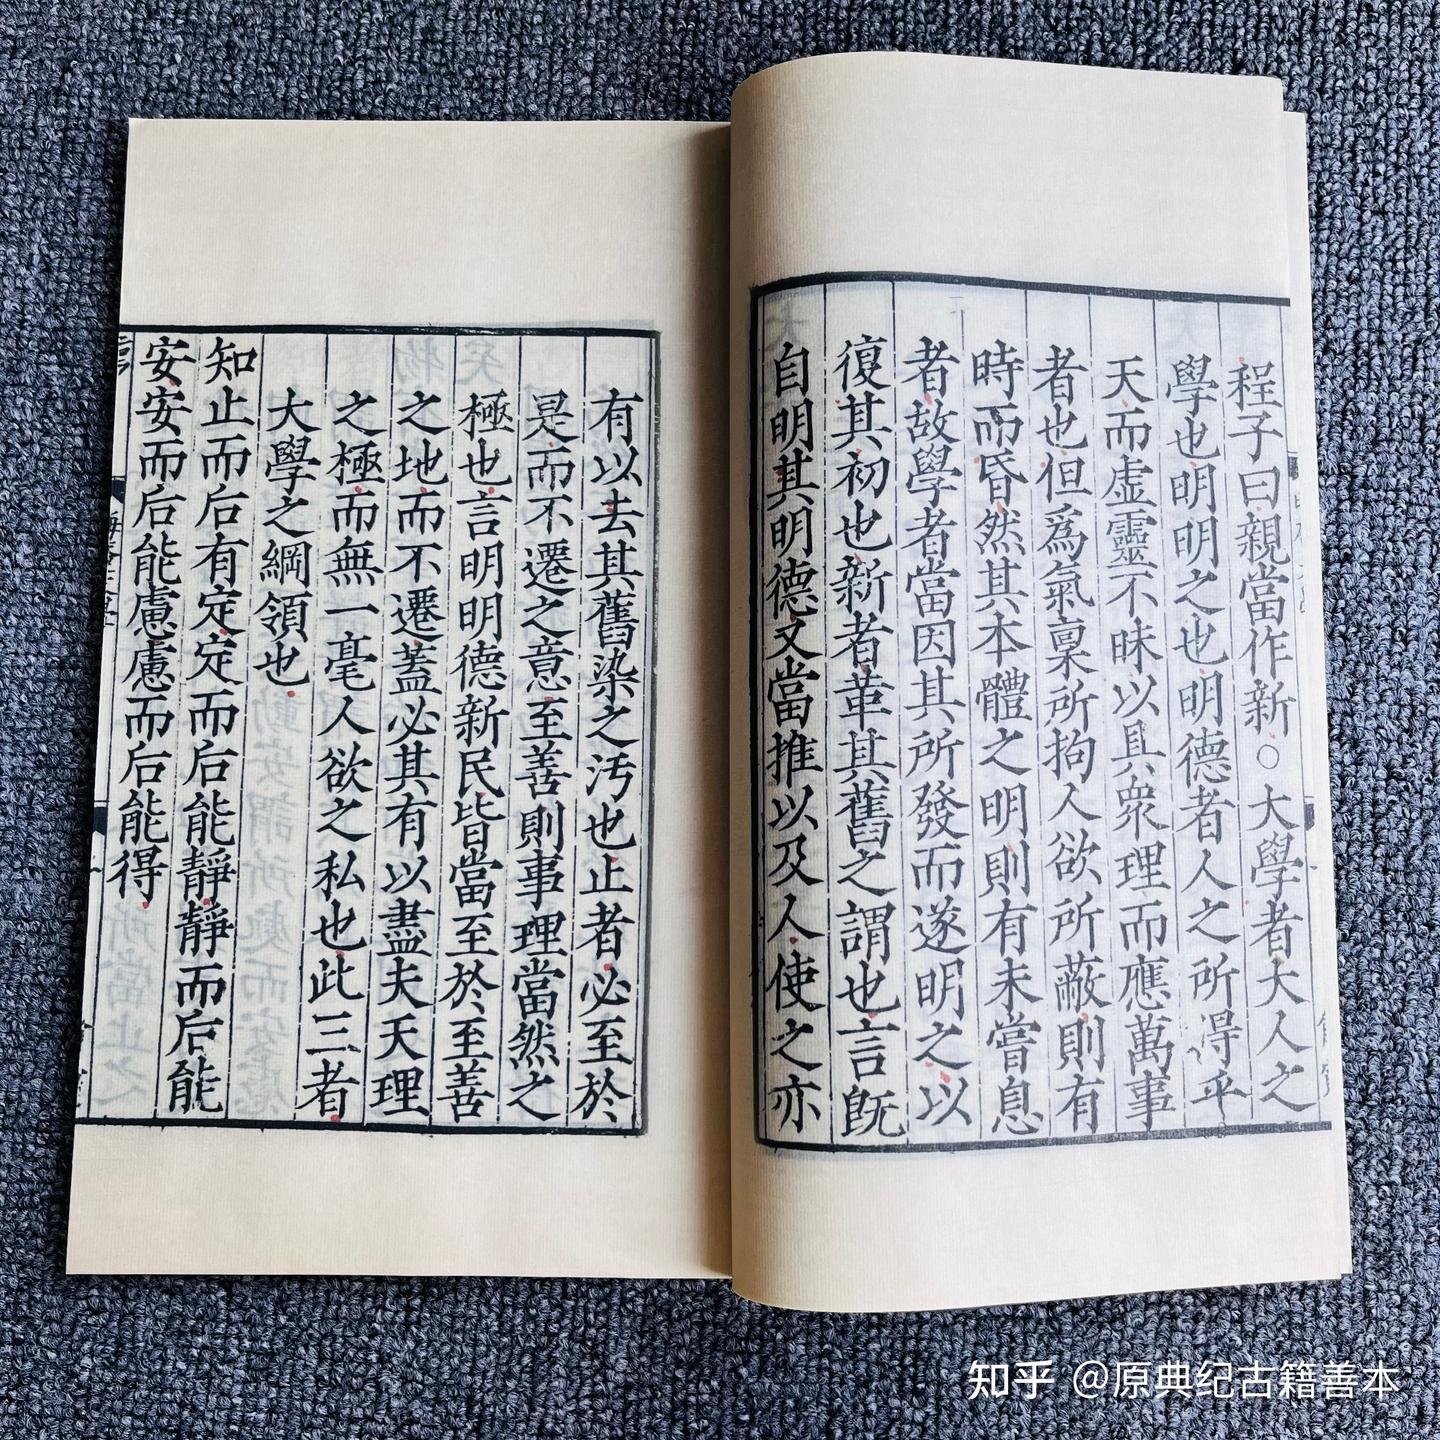 程子曰親當作新○大學者大人之
學也明明之也明德者人之所得乎
天而虛靈不昧以具衆理而應萬事
者也但爲氣稟所拘人欲所蔽則有
時而昏然其本體之明則有未嘗息
者故學者當因其所發而遂明之以
復其初也新者革其舊之謂也言旣
自明其明德又當推以及人使之亦
有以去其舊染之汚也止者必至於
是而不遷之意至善則事理當然之
極也言明明德新民皆當至於至善
之地而不遷蓋必其有以盡夫天理
之極而無一毫人欲之私也此三者
大學之綱領也
知止而后有定定而后能靜靜而后能
安安而后能慮慮而后能得
知乎 @原典纪古籍善本